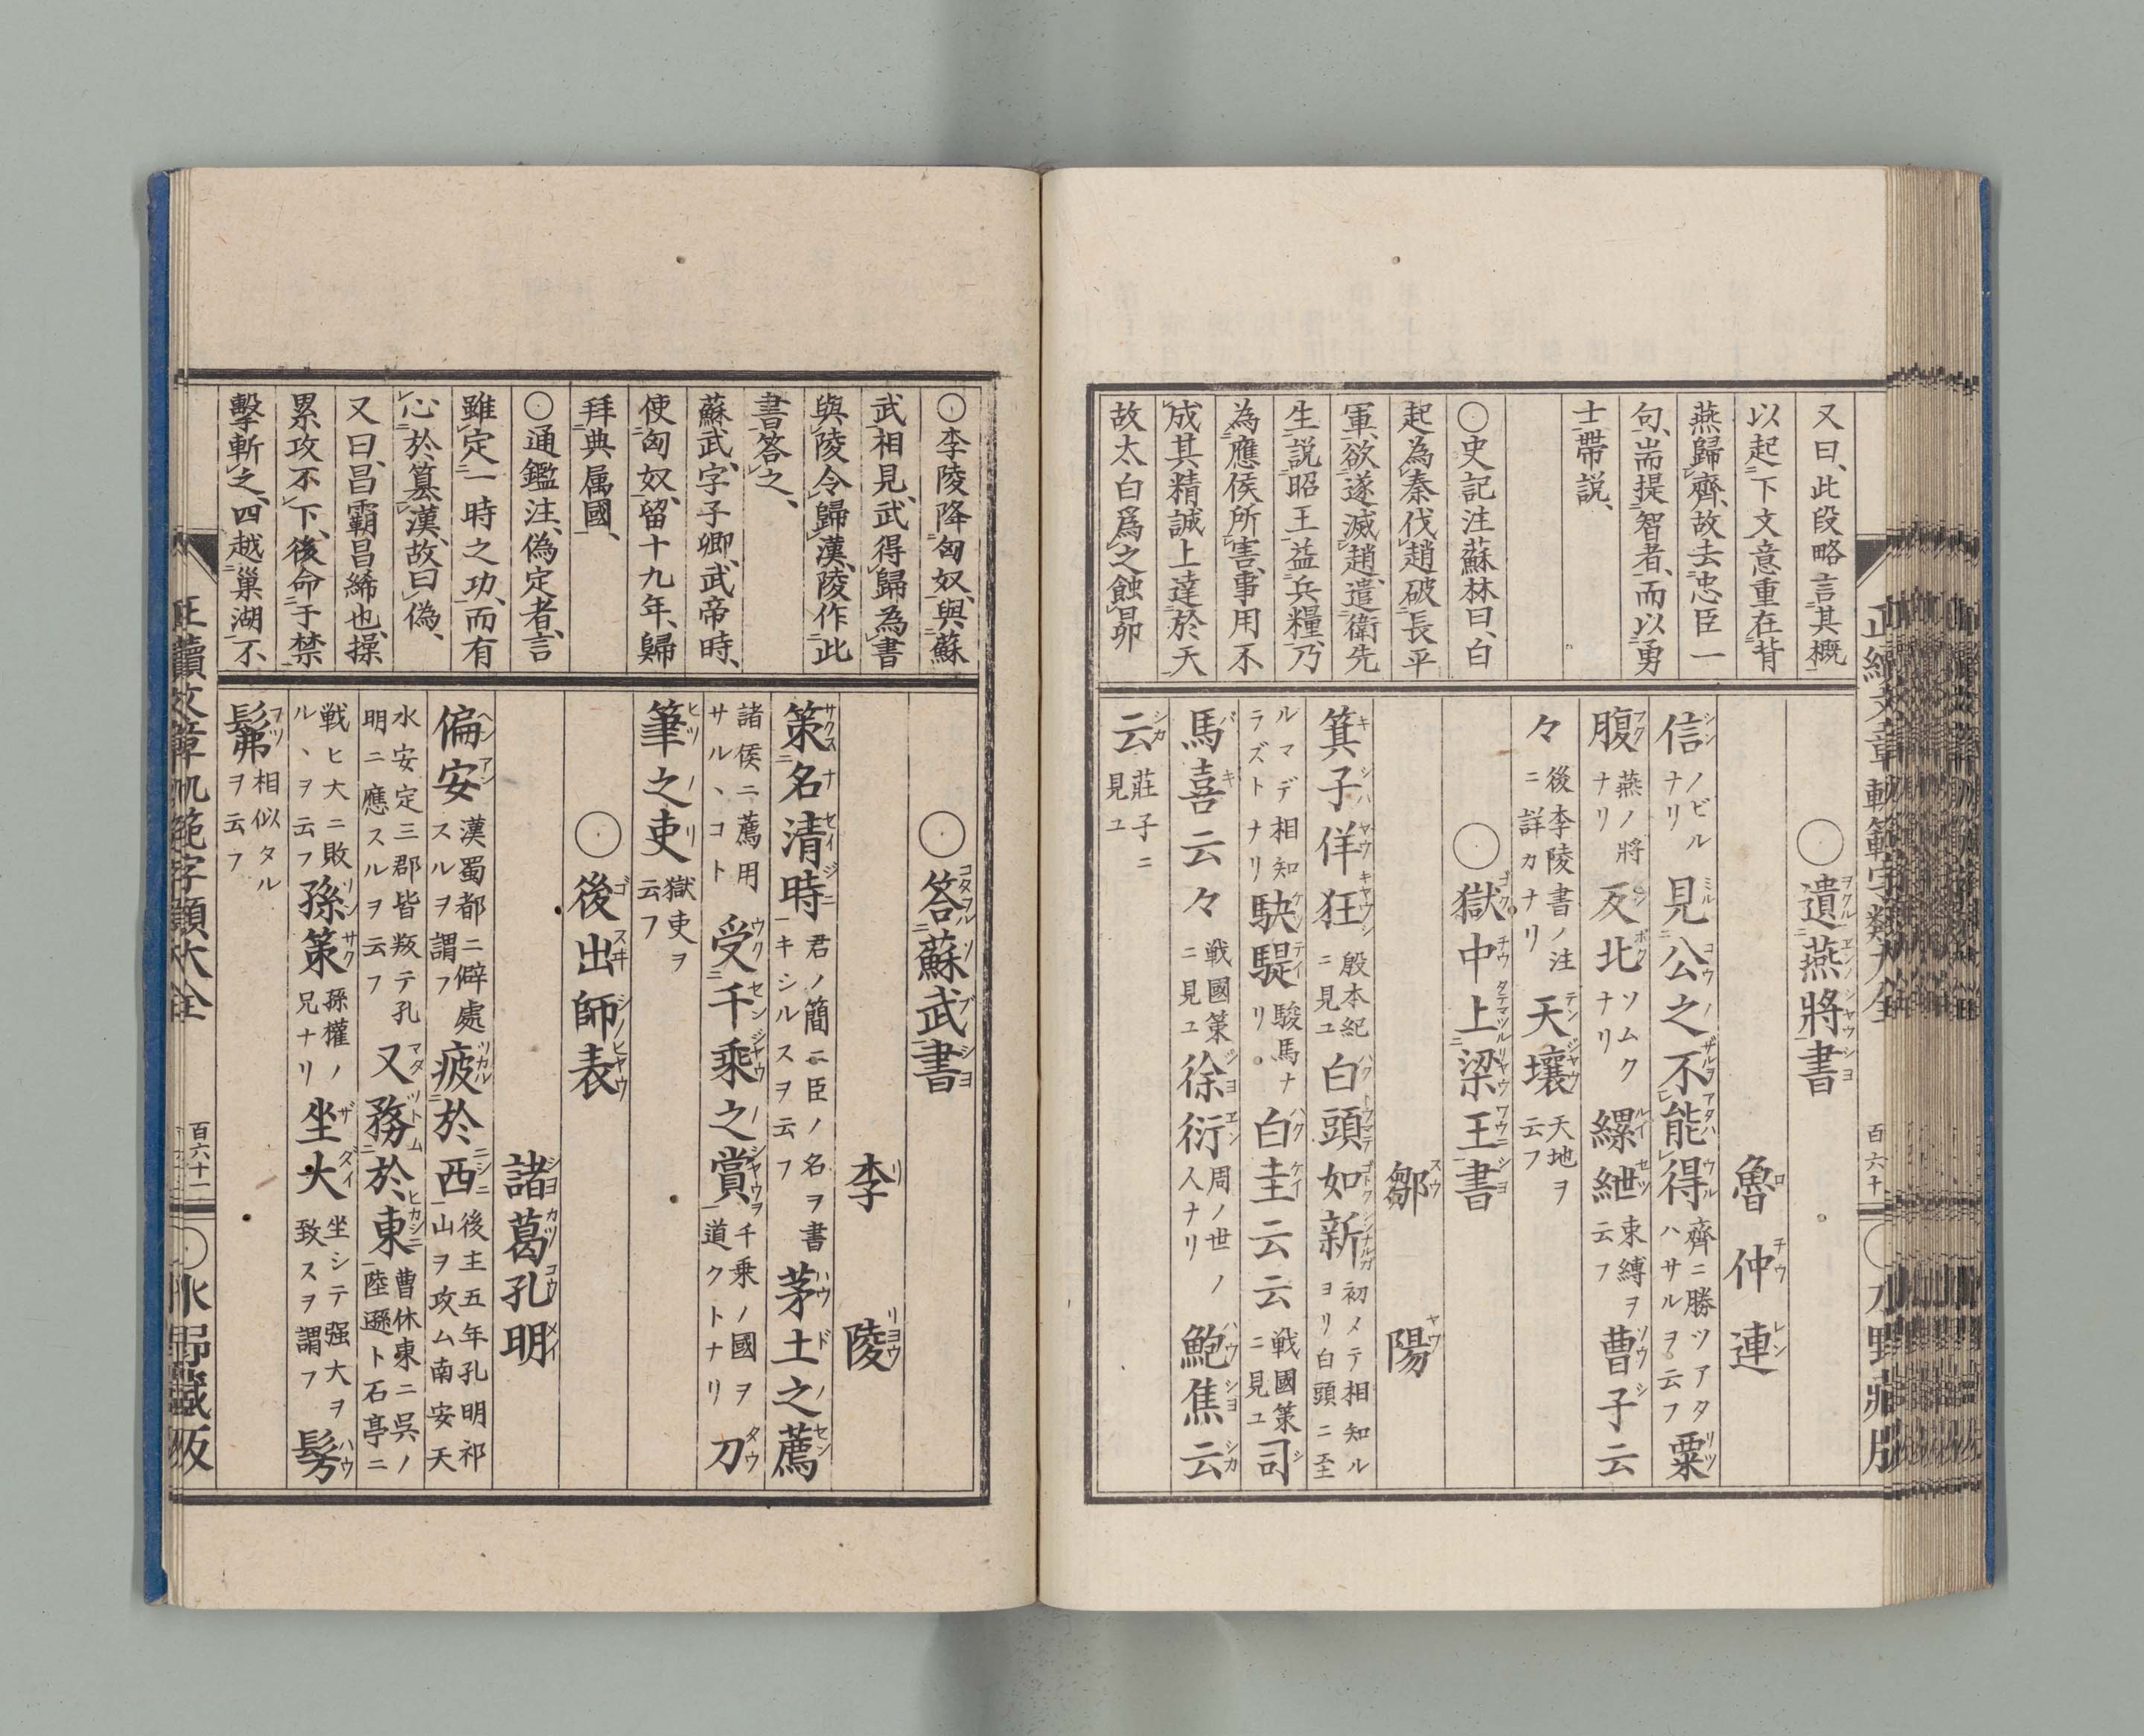 又曰、此段略言其概
以起下文意重在背
燕歸齊、故去忠臣一
句、耑提智者、而以勇
士帶説、
〇史記注蘇林曰、白
起為秦伐趙破長平
軍、欲遂滅趙、遣衛先
生説昭王益兵糧、乃
為應侯所害、事用不
成其精誠上達於天
故太白爲之蝕昴
〇遺燕將書
魯仲連
信ノビルナリ 見公之不能得齊ニ勝ツアタハサルヲ云フ 粟
腹燕ノ將ナリ 反北ソムクナリ 縲紲束縛ヲ云フ 曹子云
々後李陵書ノ注ニ詳カナリ 天壤天地ヲ云フ
〇獄中上梁王書
鄒陽
箕子佯狂殷本紀ニ見ユ 白頭如新初メテ相知ルヨリ白頭ニ至
ルマデ相知ラズトナリ 駃騠駿馬ナリ。 白圭云云戦國策ニ見ユ 司
馬喜云々戦國策ニ見ユ 徐衍周ノ世ノ人ナリ 鮑焦云
云荘子ニ見ユ
正續文章軌範字類大全 百六十 〇水野藏版
〇李陵降匈奴、與蘇
武相見、武得歸為書
與陵令歸漢、陵作此
書答之、
蘇武、字子卿、武帝時、
使匈奴、留十九年、歸
拜典属國、
〇通鑑注、偽定者、言
雖定一時之功、而有
心於篡漢、故曰偽、
又曰、昌霸昌絺也、操
累攻不下、後命于禁
擊斬之、四越巢湖不
〇答蘇武書
李陵
策名清時君ノ簡ニ臣ノ名ヲ書キシルスヲ云フ 茅土之薦
諸侯ニ薦用サルヽコト 受千乘之賞千乗ノ國ヲ道クトナリ 刀
筆之吏獄吏ヲ云フ
〇後出師表
諸葛孔明
偏安漢蜀都ニ僻處スルヲ謂フ 疲於西後主五年孔明祁山ヲ攻ム南安天
水安定三郡皆叛テ孔明ニ應スルヲ云フ 又務於東曹休東ニ呉ノ陸遜ト石亭ニ
戦ヒ大ニ敗ルヽヲ云フ 孫策孫權ノ兄ナリ 坐大坐シテ强大ヲ致スヲ謂フ 髣
髴相似タルヲ云フ
正續文章軌範字類大全 百六十一 〇水野藏版